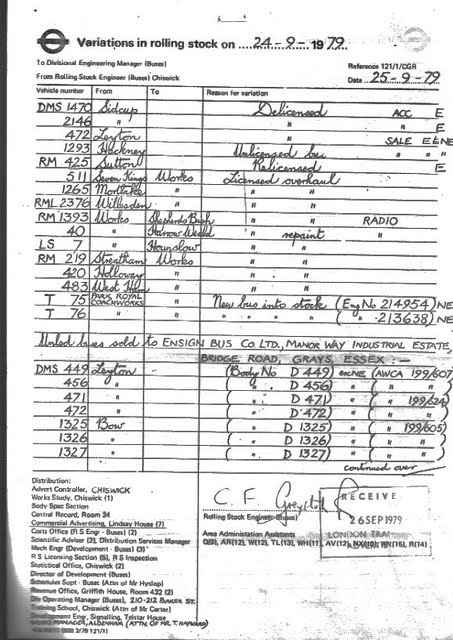 Variations in rolling stock on 24-9-1979
To Divisional Engineering Manager (Buses)
Reference 121/1/CGR
From Rolling Stock Engineer (Buses) Chiswick
Date 25-9-79
Vehicle number From To Reason for variation
DMS 1470 Sidcup Delicensed ACC E
2146 " " " E
472 Leyton " SALE E&NE
1293 Hackney Unlicensed bus " " "
RM 425 Sutton Relicensed E
511 Seven Kings Works Licensed overhaul
1265 Mortlake " " "
RML 2376 Willesden " " "
RM 1393 Works Shepherds Bush " " RADIO
40 " Harrow Weald " repaint
LS 7 " Hounslow " "
RM 219 Streatham Works " "
420 Holloway " " "
483 West Ham " " "
T 75 PARK ROYAL COACHWORKS New bus into stock (Eng No 214954) NE
T 76 " " " " ( " 213638) NE
Unlcsd buses sold to ENSIGN BUS CO LTD., MANOR WAY INDUSTRIAL ESTATE,
BRIDGE ROAD, GRAYS, ESSEX :—
DMS 449 Leyton (Body No D 449) (AWCA 199/607)
456 " ( " " D 456) " ( " " )
471 " ( " " D 471) " ( " 199/624)
472 " ( " " D 472) " ( " " )
1325 Bow ( " " D 1325) " ( " 199/605)
1326 " ( " " D 1326) " ( " " )
1327 " ( " " D 1327) " ( " " )
continued over
Distribution:
Advert Controller, CHISWICK
Works Study, Chiswick (1)
Body Spec Section
Central Record, Room 34
Commercial Advertising, Lindsay House (7)
Costs Office (R S Engr - Buses) (2)
Scientific Adviser (2), Distribution Services Manager
Mech Engr (Development - Buses) (3)
R S Licensing Section (5), R S Inspection
Statistical Office, Chiswick (2)
Director of Development (Buses)
Schedules Supt - Buses (Attn of Mr Hyslop)
Revenue Office, Griffith House, Room 432 (2)
Operating Manager (Buses), 210-212 BAKER ST.
Training School, Chiswick (Attn of Mr Carter)
Development Engr, Signalling, Telstar House
MANAGER, ALDENHAM (ATTN. OF MR. T. HAYWARD)
2/79 121/1)
C. F.
Rolling Stock Engineer (Buses)
Area Administration Assistants
RECEIVE
26 SEP 1979
LONDON TRA